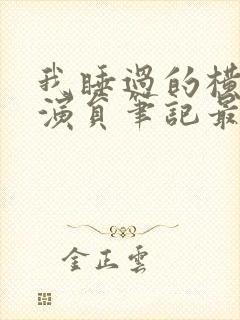 我睡過的橫
演員筆記最
金正雲